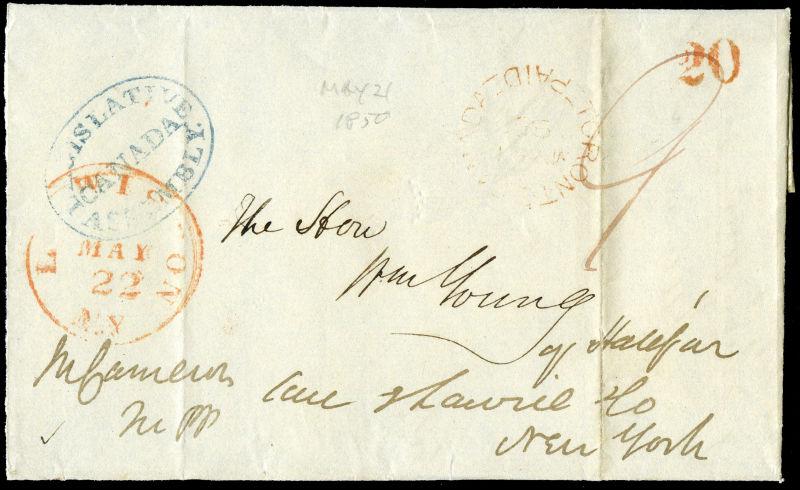 20
MAY 21
1850
LEGISLATIVE ASSEMBLY
CANADA
TORONTO
PAID
LEWISTON
MAY
22
N.Y
9
The Hon
Wm Young
of Halifax
M Cameron
MPP
Care Lawrie & Co
New York